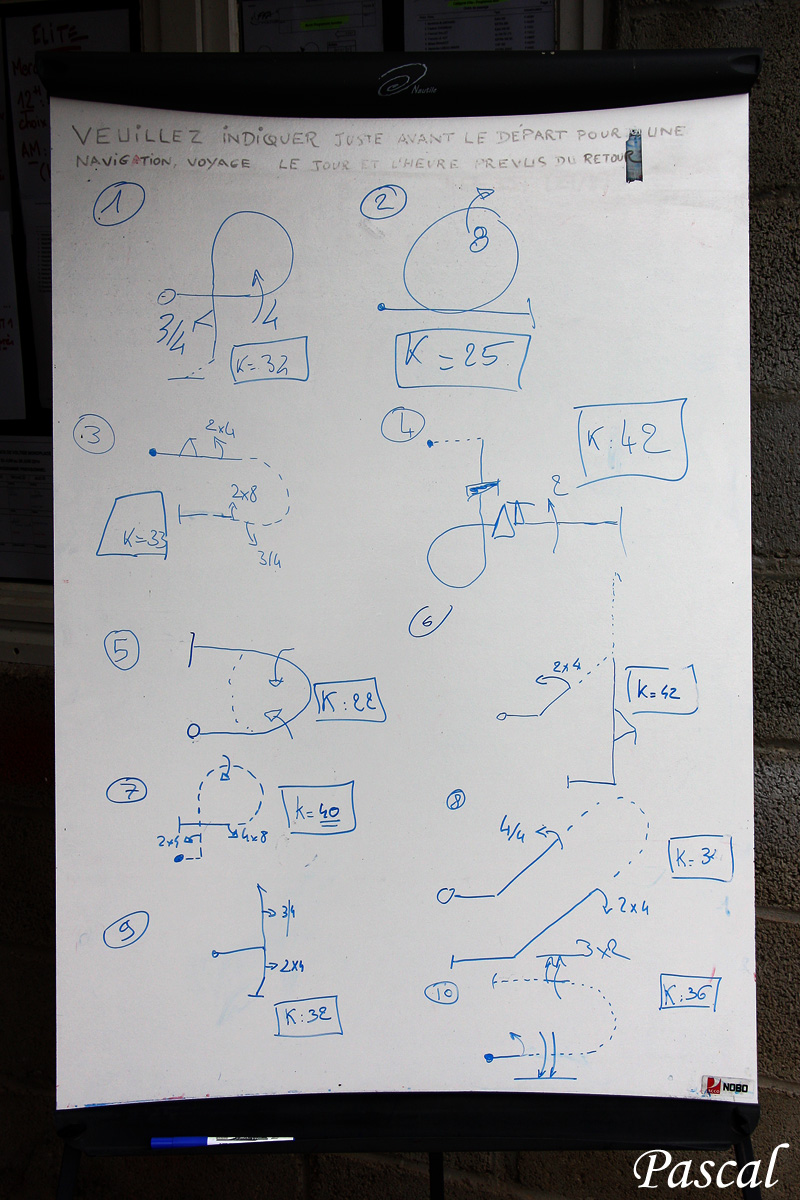 Nautile
VEUILLEZ INDIQUER JUSTE AVANT LE DÉPART POUR UNE
NAVIGATION, VOYAGE LE JOUR ET L'HEURE PREVUS DU RETOUR
ELITE
1
3/4
4
K=32
2
8
K=25
3
2x4
2x8
3/4
K=33
4
2
K:42
5
K:22
6
2x4
K=42
7
2x4
4x8
K=40
8
4/4
2x4
9
3/4
2x4
K:32
10
3x2
K:36
NOBO
Pascal